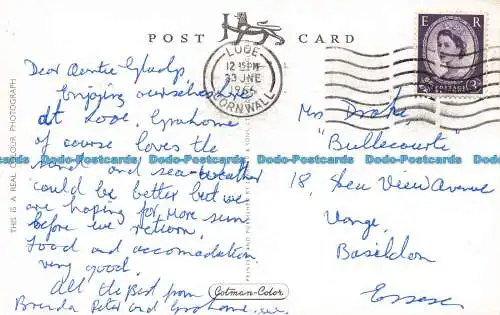 POST CARD
LOOE
12 15 PM
23 JNE
1965
CORNWALL
E R
POSTAGE
3D
THIS IS A REAL COLOUR PHOTOGRAPH
Dear Auntie Gladys,
Enjoying ourselves here
at Looe, Grahame
of course loves the
sand and sea - weather
could be better but we
are hoping for more sun
before we return.
Food and accomodation
very good.
All the Best from
Brenda Peter and Grahame. xxx
Mrs Drake,
"Bullecourte"
18, Sea View Avenue
Vange,
Basildon
Essex
PRINTED AND
Cotman-Color
Dodo-Postcards.com Dodo-Postcards.com Dodo-Postcards.com